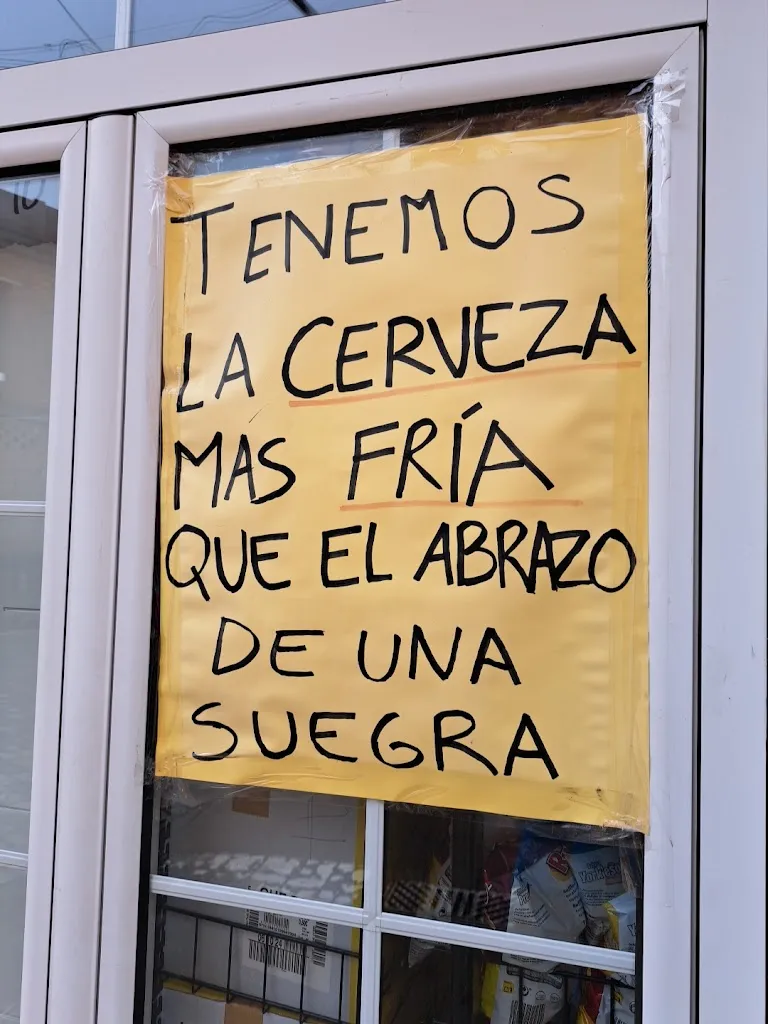 TENEMOS
LA CERVEZA
MAS FRÍA
QUE EL ABRAZO
DE UNA
SUEGRA